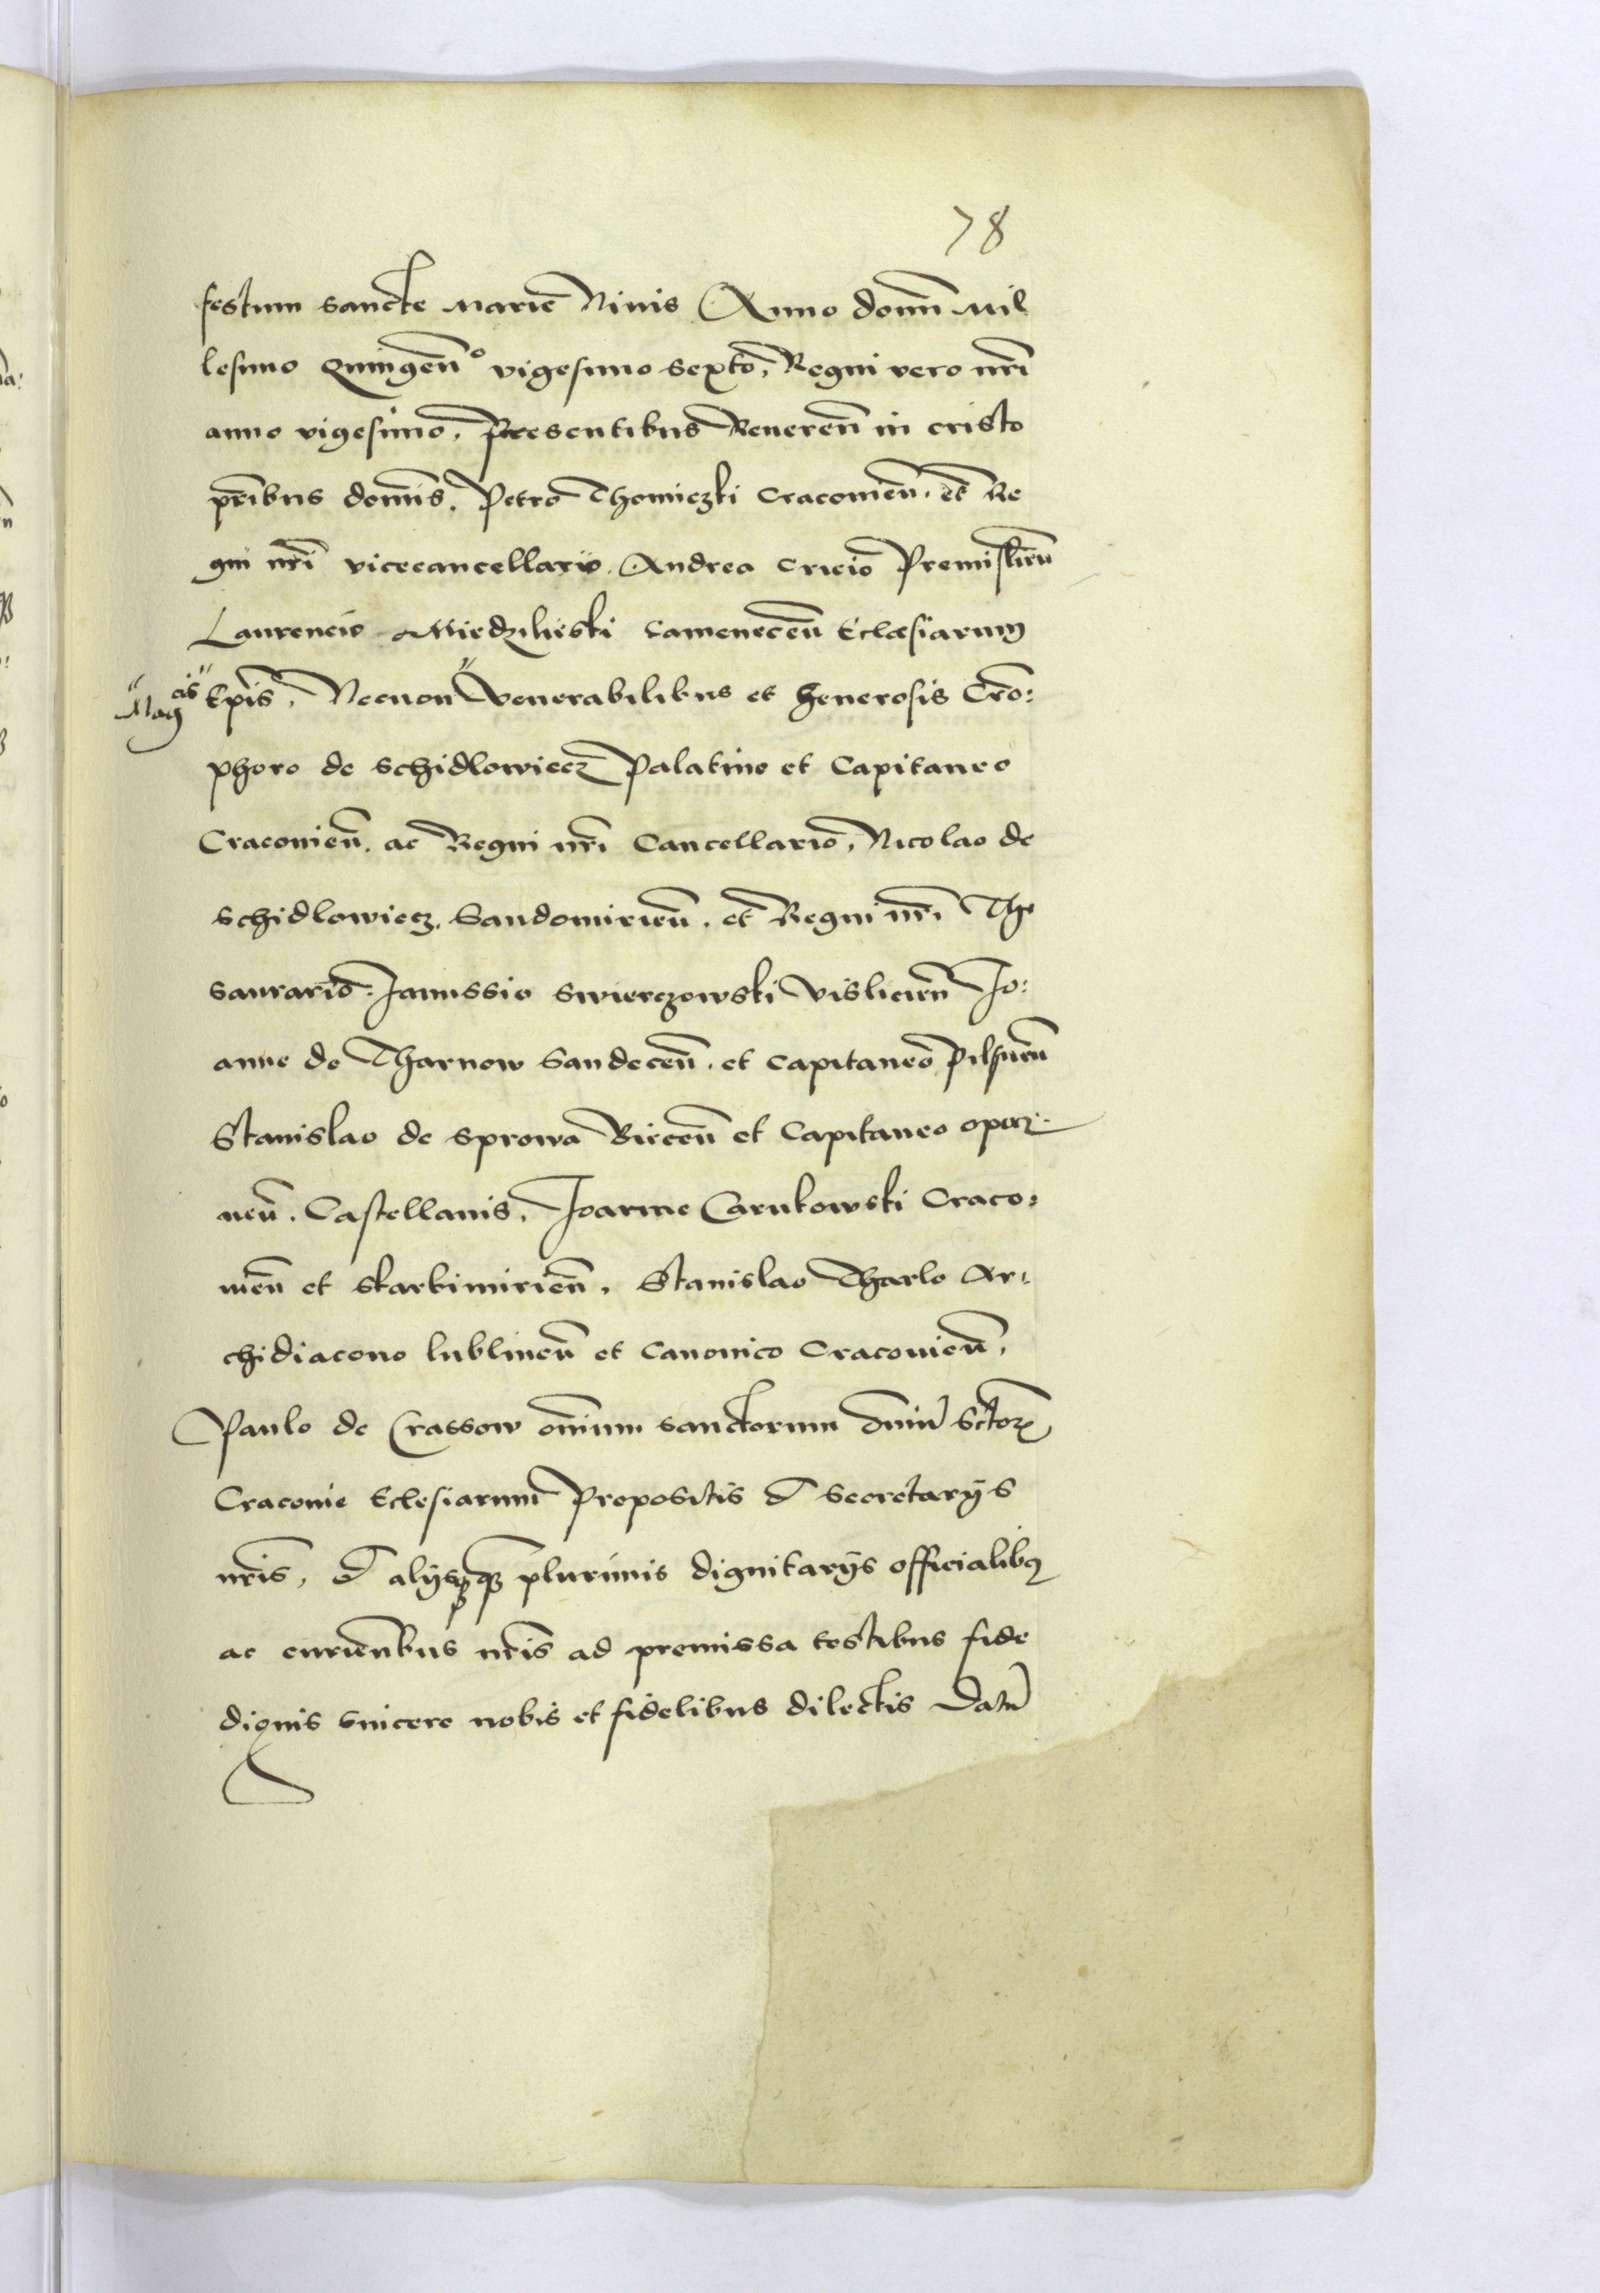 78
festum sancte Marie Nivis Anno domn̄ Mil
lesimo Quingen̄o vigesimo sexto, Regni vero nr̄i
anno vigesimo, Presentibus Reueren̄ in cristo
pr̄ibus domīs, Petro Thomiczki Cracouien̄. et Re
gni nr̄i vicecancellario, Andrea Cricio Premislien̄
Laurencio Miedzileski Camenecen̄ Eclæsiarum
Mag̃cis
Ep̄is, Necnon " Venerabilibus et Generosis Cro:
phoro de Schidlowiecz Palatino et Capitaneo
Cracouien̄. ac Regni nr̄i Cancellario, Nicolao de
Schidlowiecz, Sandomirien̄. et Regni nr̄i The
saurario: Janussio Swierczowski Vislicien̄ Jo:
anne de Tharnow Sandecen̄. et Capitaneo Pilsnen̄
Stanislao de Sprowa Biecen̄ et Capitaneo opocz:
nen̄. Castellanis, Joanne Carnkowski Craco:
uien̄ et Skarbimirien̄, Stanislao Tharlo Ar:
chidiacono lublinen̄ et Canonico Cracouien̄,
Paulo de Crassow om̄ium sanctorum
Cracouie Eclesiarum Propositis et Secretarijs
nr̄is, et alijsq̄ plurimis dignitarijs officialibq
ac curien̄bus nr̄is ad premissa testibus fide
dignis sincere nobis et fidelibus dilectis Datu̅